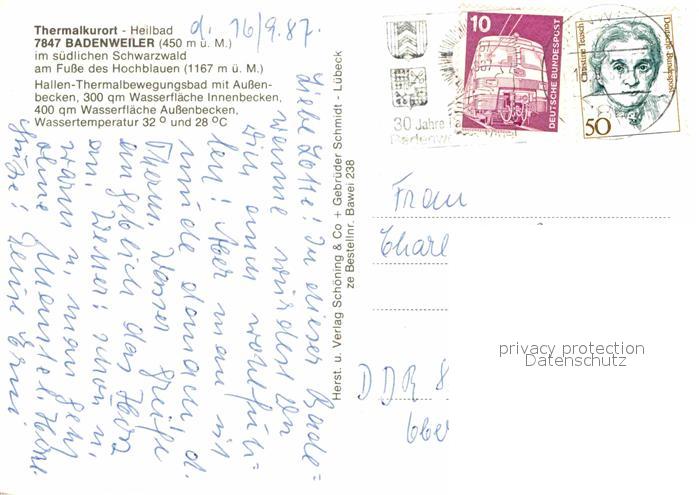 Thermalkurort - Heilbad
7847 BADENWEILER (450 m ü. M.)
im südlichen Schwarzwald
am Fuße des Hochblauen (1167 m ü. M.)
Hallen-Thermalbewegungsbad mit Außen-
becken, 300 qm Wasserfläche Innenbecken,
400 qm Wasserfläche Außenbecken,
Wassertemperatur 32 º und 28 ºC
d. 16/9.87.
Liebe Lotte! In dieser Bade=
wanne würdest Du
Dich auch wohlfüh=
len! Aber man ist
müde danach, d.
Therm. Wasser greift
angeblich das Herz
an. Wetter: schön u.
warm u. man geht
ohne Mantel. Herzl.
Grüße! Deine Erni.
Herst. u. Verlag Schöning & Co + Gebrüder Schmidt - Lübeck
ze Bestellnr. Bawei 238
30 Jahre
10
DEUTSCHE BUNDESPOST
Christine Teusch
Deutsche Bundespost
50
Frau
Charl
DDR 8
Ober
privacy protection
Datenschutz